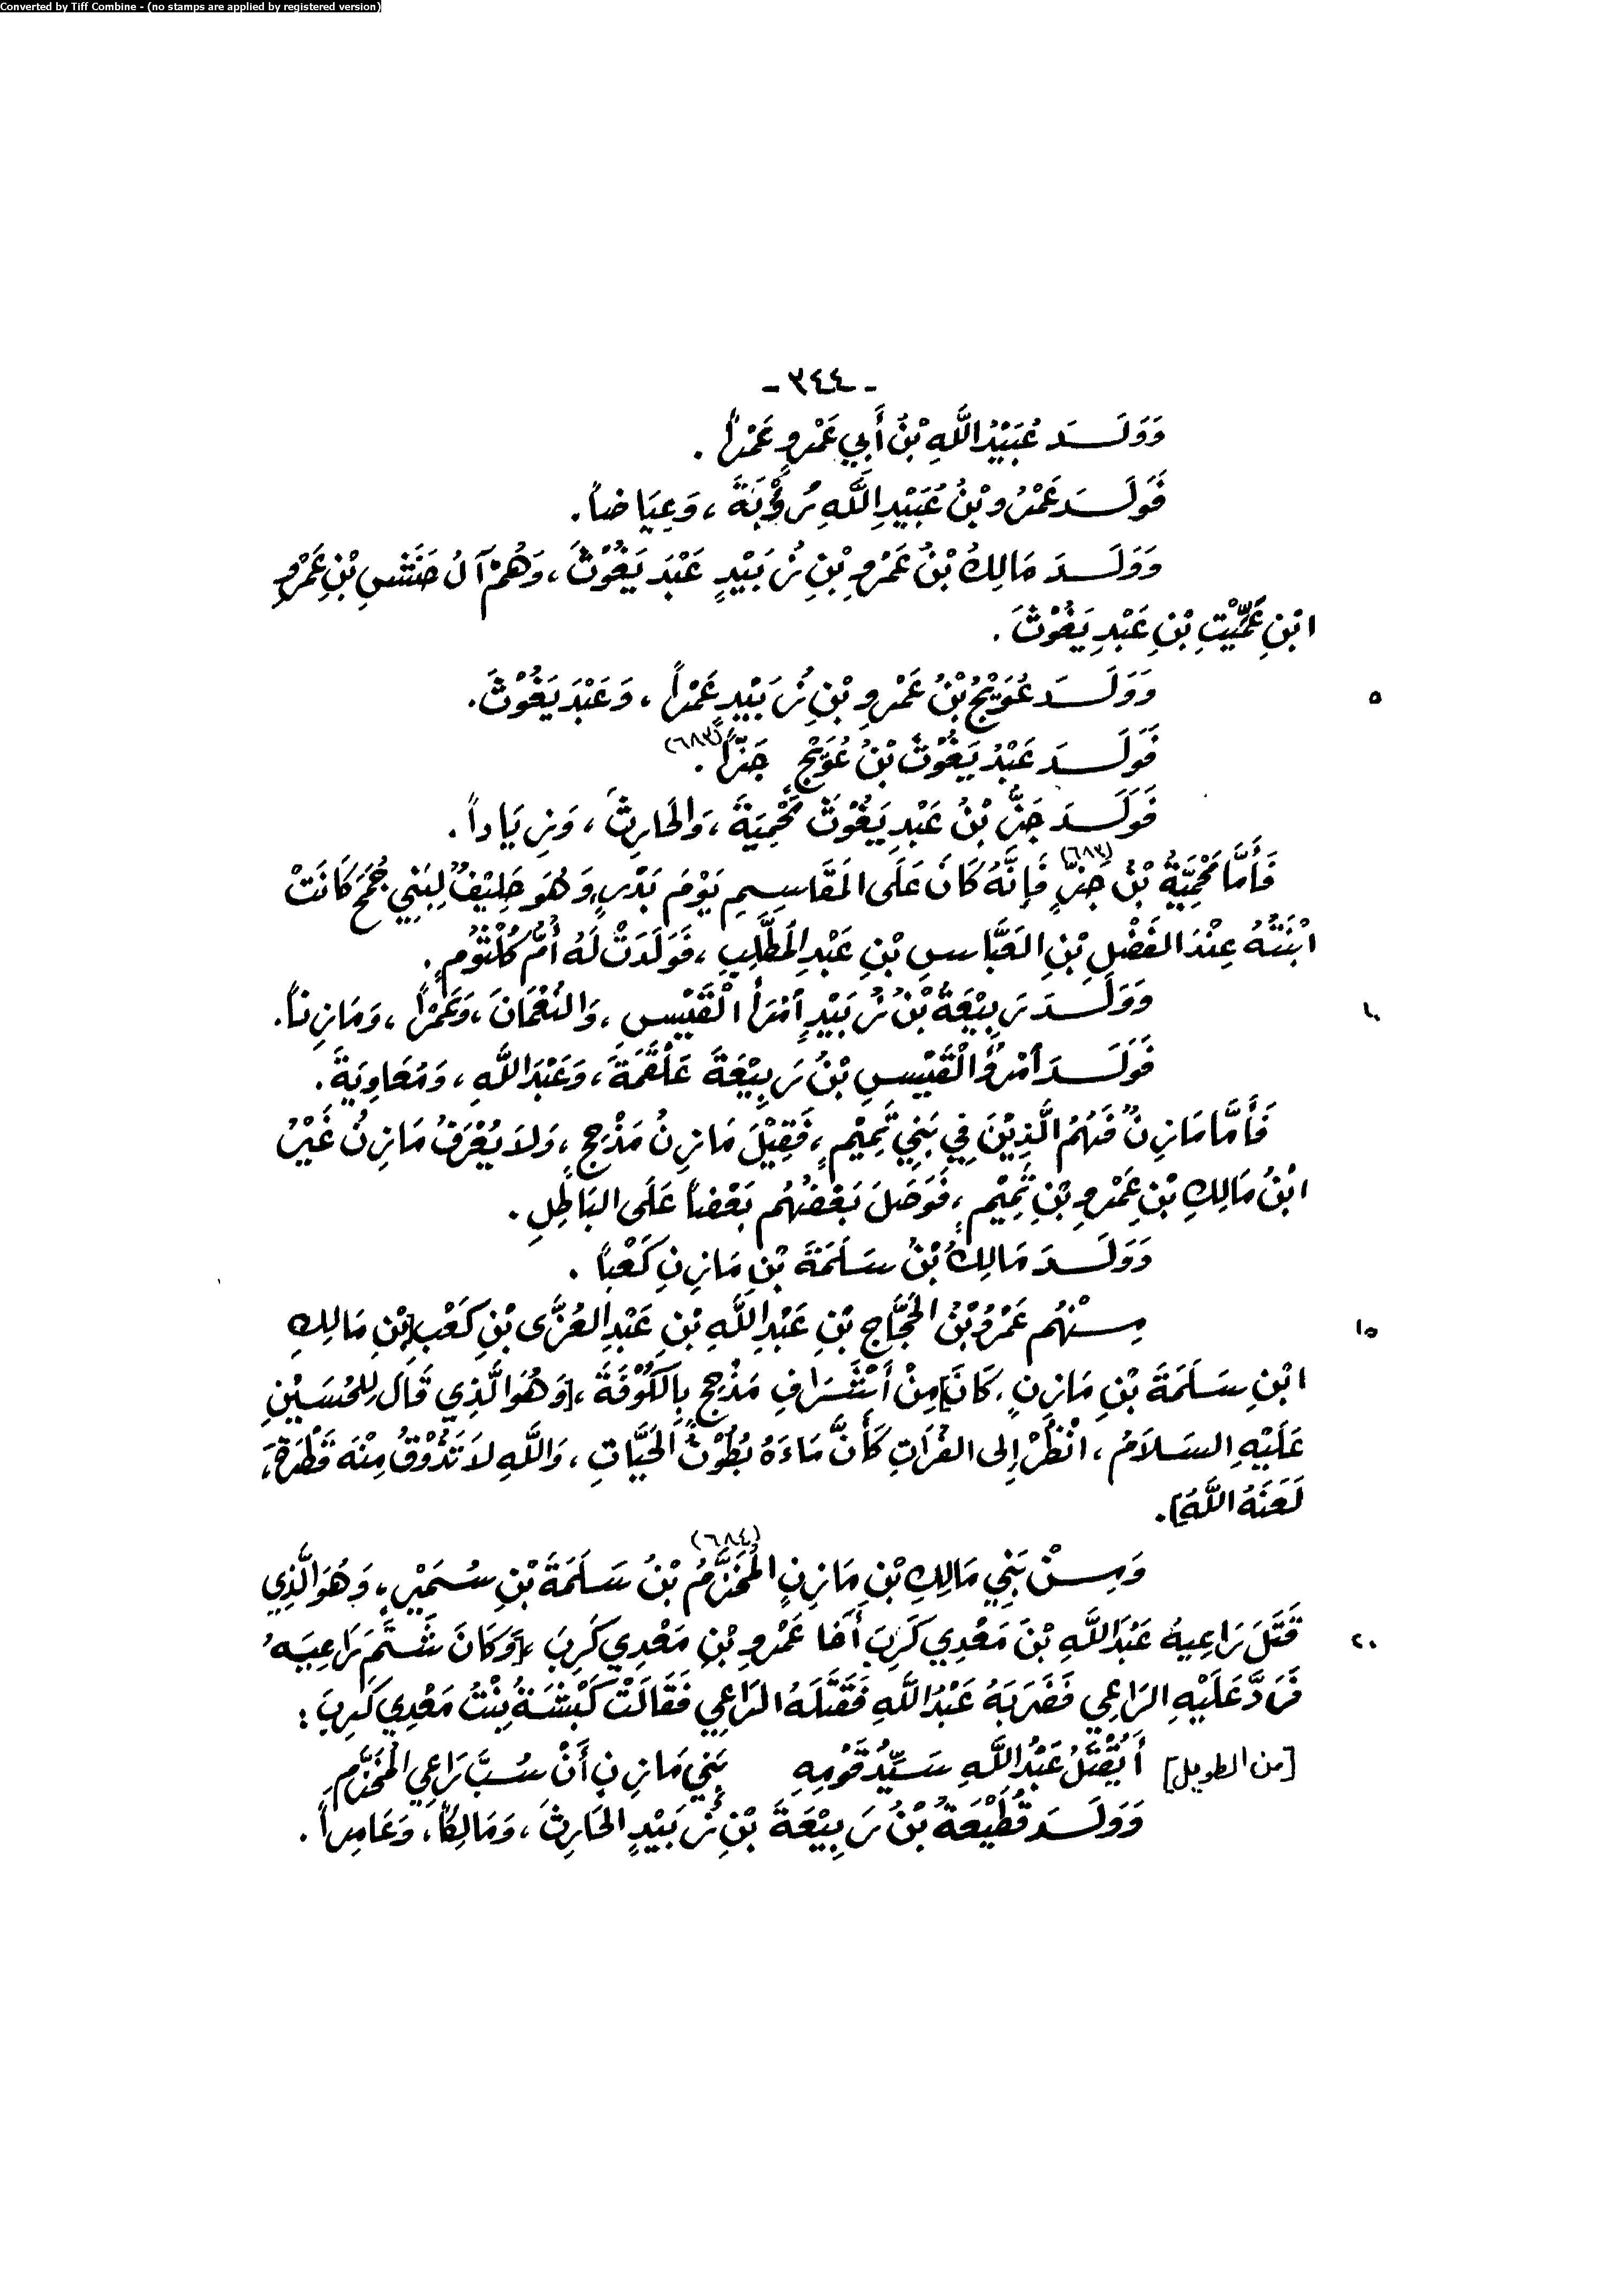 Converted by Tiff Combine - (no stamps are applied by registered version)
- ٣٤٤ -
وَوَلَدَ عُبَيْدُ اللَّهِ بْنُ أَبِي عَمْرٍو عَمْراً .
فَوَلَدَ عَمْرُو بْنُ عُبَيْدِ اللَّهِ رُؤْبَةَ ، وَعِيَاضاً .
وَوَلَدَ مَالِكُ بْنُ عَمْرِو بْنِ زُبَيْدٍ عَبْدَ يَغُوْثَ ، وَهُمْ آلُ حَنَشِ بْنِ عَمْرِو
ابْنِ عَمِّيْتِ بْنِ عَبْدِ يَغُوْثَ .
٥ وَوَلَدَ عُوَيْجُ بْنُ عَمْرِو بْنِ زُبَيْدٍ عَمْراً ، وَعَبْدَ يَغُوْثَ .
فَوَلَدَ عَبْدُ يَغُوْثَ بْنُ عُوَيْجٍ جَزّاً (٦٨٣) .
فَوَلَدَ جَزُّ بْنُ عَبْدِ يَغُوْثَ مَحْمِيَةَ ، وَالحَارِثَ ، وَزِيَاداً .
فَأَمَّا مَحْمِيَّةُ بْنُ جَزٍّ (٦٨٣) فَإِنَّهُ كَانَ عَلَى المَقَاسِمِ يَوْمَ بَدْرٍ، وَهُوَ حَلِيْفٌ لِبَنِي جُمَحَ كَانَتْ
ابْنَتُهُ عِنْدَ الفَضْلِ بْنِ العَبَّاسِ بْنِ عَبْدِ المُطَّلِبِ ، فَوَلَدَتْ لَهُ أُمَّ كُلْثُوْمٍ .
١٠ وَوَلَدَ رَبِيْعَةُ بْنُ زُبَيْدٍ أمْرَأَ الْقَيْسِ ، وَالنُعْمَانَ ، وَعَمْراً ، وَمَازِناً .
فَوَلَدَ أمْرُؤُ الْقَيْسِ بْنُ رَبِيْعَةَ عَلْقَمَةَ ، وَعَبْدَ اللَّهِ ، وَمُعَاوِيَةَ .
فَأَمَّا مَازِنٌ فَهُمُ الَّذِيْنَ فِي بَنِي تَمِيْمٍ ، فَقِيْلَ مَازِنُ مَذْحِجٍ ، وَلاَ يُعْرَفُ مَازِنُ غَيْرُ
ابْنُ مَالِكِ بْنِ عَمْرِو بْنِ تَمِيْمٍ ، فَوَصَلَ بَعْضُهُم بَعْضاً عَلَى البَاطِلِ .
وَوَلَدَ مَالِكُ بْنُ سَلَمَةَ بْنِ مَازِنٍ كَعْباً .
١٥ مِنْهُم عَمْرُو بْنُ الحَجَّاجِ بْنِ عَبْدِ اللَّهِ بْنِ عَبْدِ العُزَّى بْنِ كَعْبِ [بْنِ مَالِكِ
ابْنِ سَلَمَةَ بْنِ مَازِنٍ ، كَانَ] مِنْ أَشْرَافِ مَذْحِجٍ بِالكُوْفَةَ ، [وَهُوَ الَّذِي قَالَ لِلحُسَيْنِ
عَلَيْهِ السَلاَمُ ، انْظُرْ إِلى الفُرَاتِ كَأَنَّ مَاءَهُ بُطُوْنُ الحَيَّاتِ ، وَاللَّهِ لاَ تَذُوْقُ مِنْهُ قَطْرَةً ،
لَعَنَهُ اللَّهُ] .
وَمِنْ بَنِي مَالِكِ بْنِ مَازِنٍ المُخَزَّمُ (٦٨٤) بْنُ سَلَمَةَ بْنِ سُمَيْرٍ ، وَهُوَ الَّذِي
٢٠ قَتَلَ رَاعِيهُ عَبْدَ اللَّهِ بْنَ مَعْدِي كَرِبَ أَخَا عَمْرِو بْنِ مَعْدِي كَرِبَ ، [وَكَانَ شَتَمَ رَاعِيَهُ
فَرَدَّ عَلَيْهِ الرَاعِي فَضَرَبَهُ عَبْدُ اللَّهِ فَقَتَلَهُ الرَاعِي فَقَالَتْ كَبْشَةُ بِنْتُ مَعْدِي كَرِبَ :
[من الطويل] أَيُقْتَلُ عَبْدُ اللَّهِ سَيِّدُ قَوْمِهِ بَنِي مَازِنٍ أَنْ سُبَّ رَاعِي المُخَزَّمِ
وَوَلَدَ قُطَيْعَةُ بْنُ رَبِيْعَةَ بْنِ زُبَيْدٍ الحَارِثَ ، وَمَالِكاً ، وَعَامِراً .